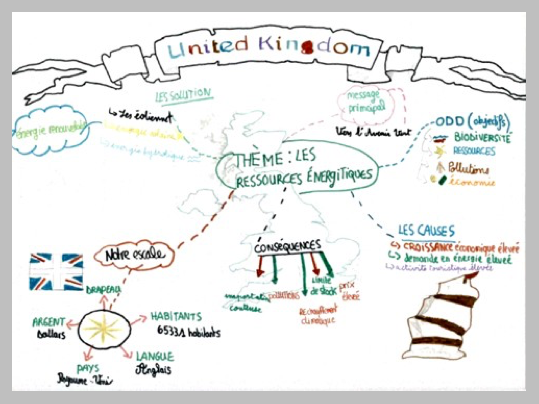 United Kingdom
LES SOLUTION
↳ Les éolienne
énergie
message
principal
Vers l'Avenir Vert
ODD (objectifs)
BIODIVERSITÉ
RESSOURCES
Pollutions
économie
THÈME : LES
RESSOURCES ÉNERGITIQUES
LES CAUSES
↳ CROISSANCE économique élevé
↳ demande en énergie élevé
↳ activité touristique élevés
CONSÉQUENCES
importati
couteuse
pollutions
Réchauffement
climatique
limite
de stock
prix
élevé
Notre escale
DRAPEAU
ARGENT
dollars
HABITANTS
65331 habitants
PAYS
Royaume-Uni
LANGUE
Anglais